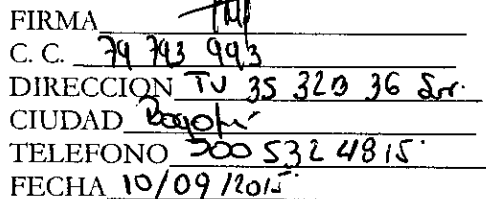 FIRMA
C. C. 79 793 993
DIRECCION TV 35 32B 36 Sur.
CIUDAD Bogotá
TELEFONO 300 532 4815
FECHA 10/09/2015